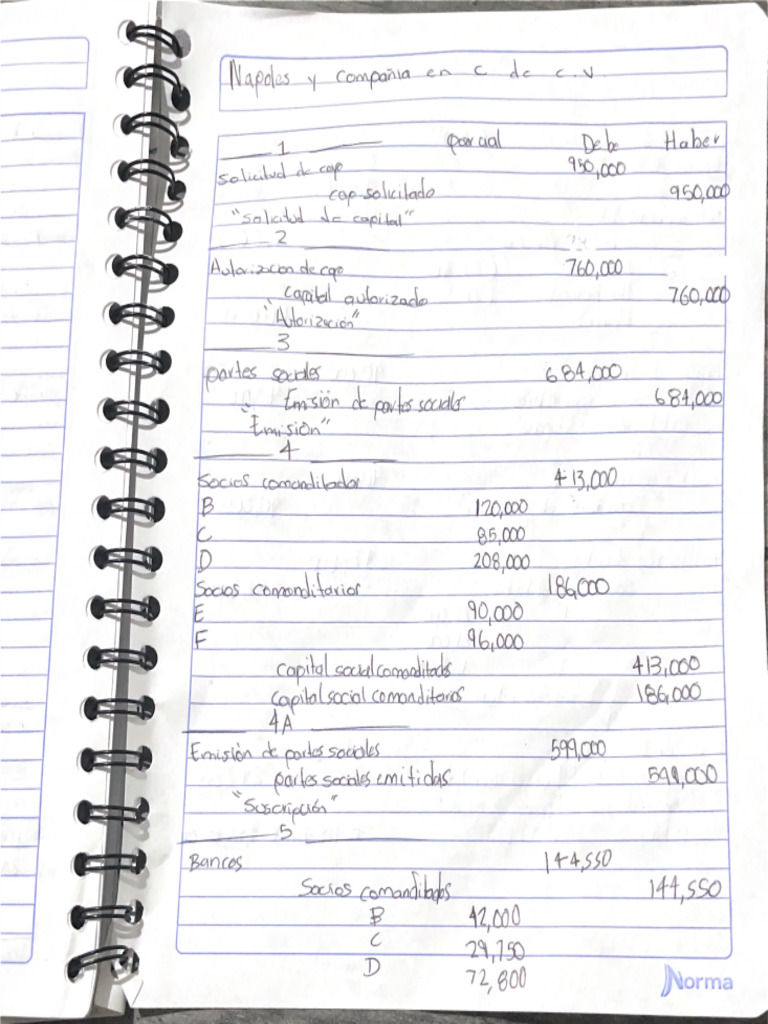 Napoles y compañia en c de c.v.
1 parcial Debe Haber
Solicitud de cap 950,000
cap solicitado 950,000
"Solicitud de capital"
2
Autorizacion de cap 760,000
capital autorizado 760,000
"Autorización"
3
partes sociales 684,000
Emisión de partes sociales 684,000
"Emisión"
4
Socios comanditados 413,000
B 120,000
C 85,000
D 208,000
Socios comanditarios 186,000
E 90,000
F 96,000
capital social comanditado 413,000
capital social comanditarios 186,000
4A
Emisión de partes sociales 599,000
partes sociales emitidas 599,000
"Suscripción"
5
Bancos 144,550
Socios comanditados 144,550
B 42,000
C 29,750
D 72,800
Norma